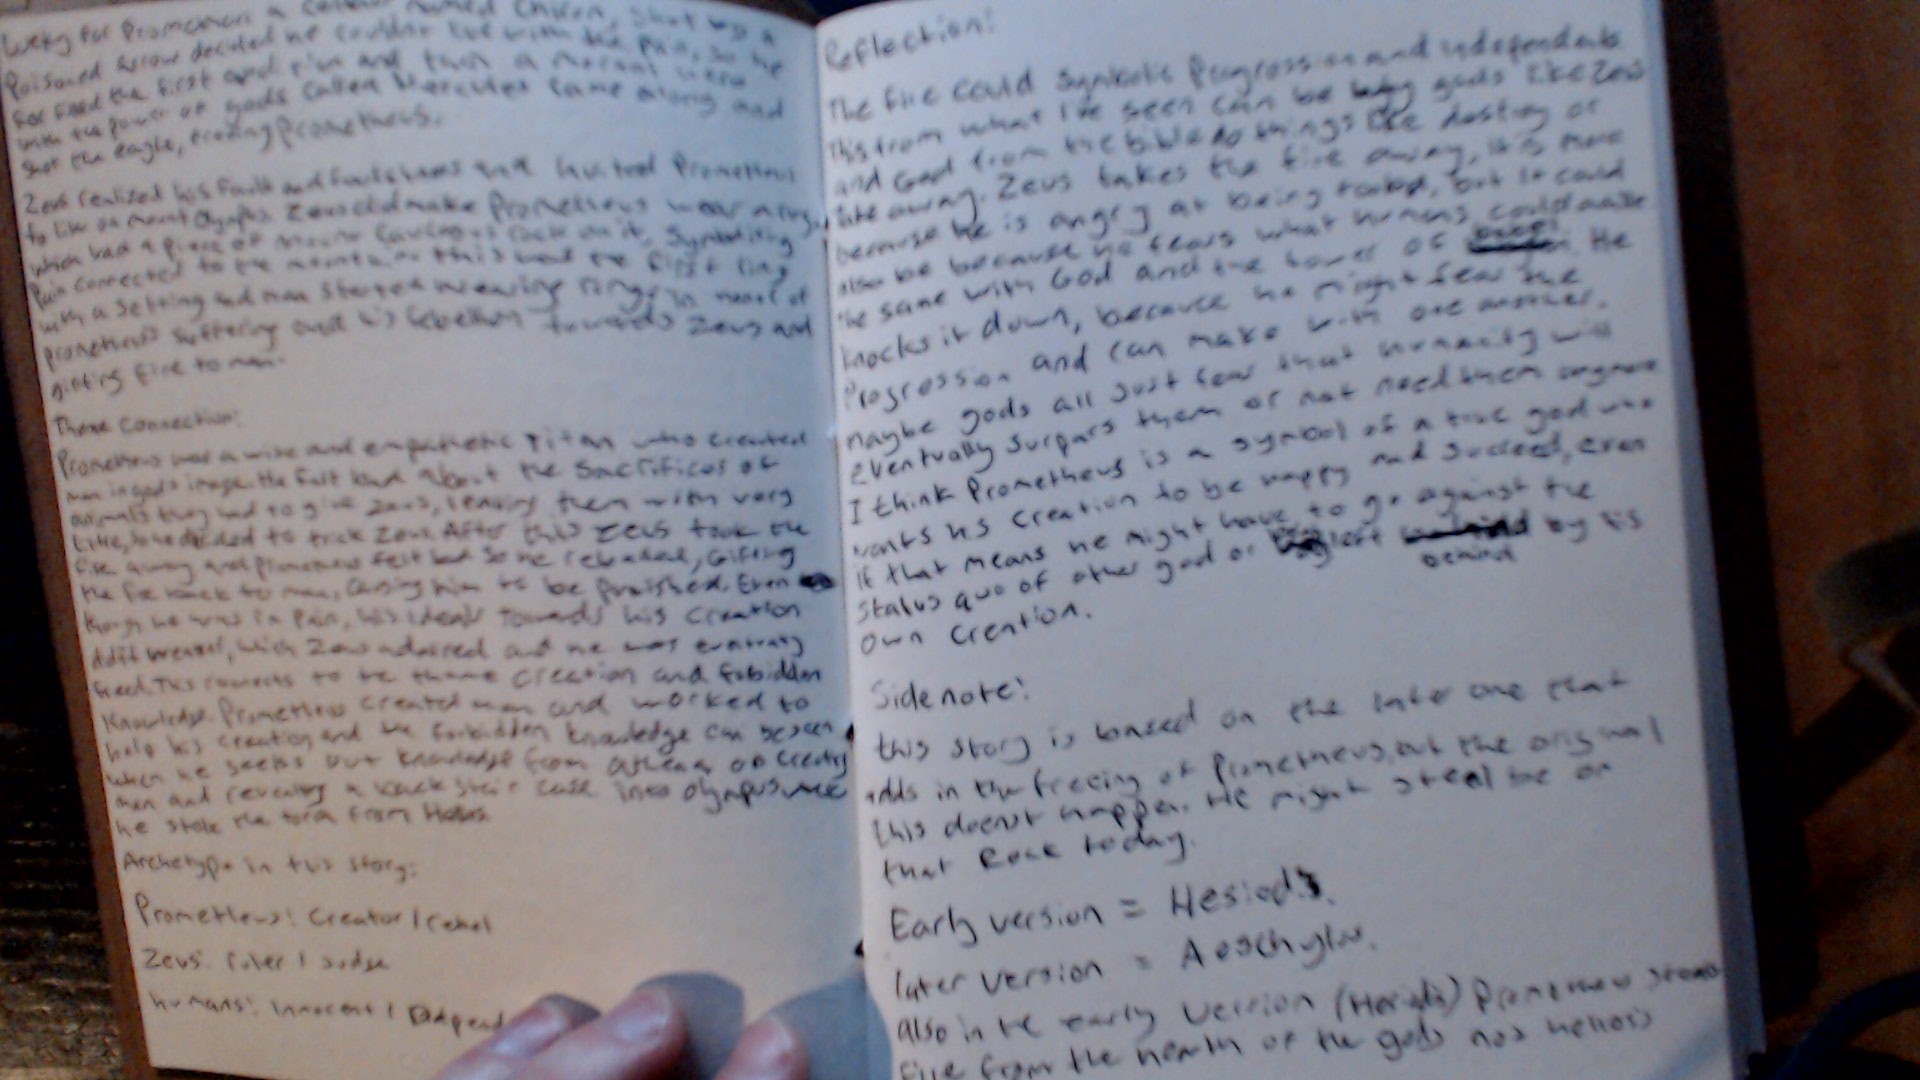 Lucky for Prometheus a centaur named Chiron, shot by a
Poisoned arrow decided he couldn't live with the pain, so he
the first and then a mortal hero
with the power of gods called Hercules came along and
shot the eagle, freeing Prometheus.
Zeus realized his fault and invited Prometheus
to live on mount Olympus. Zeus did make Prometheus wear a ring,
which had a piece of mount rock on it, Symbolizing
Pain connected to the mountain this was the first ring
with a setting and man started wearing rings in honor of
prometheus suffering and his rebellion towards Zeus and
gifting fire to man.
Theme Connection:
Prometheus was a wise and empathetic Titan who created
man in gods image. He felt bad about the Sacrifices of
animals they had to give Zeus, leaving them with very
little, so he decided to trick Zeus. After this Zeus took the
fire away and prometheus felt bad so he rebeled, Gifting
the fire back to man, causing him to be punished. Even
though he was in Pain, his ideals Towards his Creation
didn't weaver, which Zeus admired and he was eventualy
freed. This connects to the theme creation and forbidden
Knowledge. Prometheus created man and worked to
help his creation and the forbidden knowledge can be seen
when he seeks out knowledge from athena on Creating
man and revealing a back stair case into olympus where
he stole the torch from Helios.
Archetype in this story:
Prometheus: Creator/rebel
Zeus: ruler/Judge
humans: innocent/
Reflection:
The fire could Symbolic Progression and independents
This from what I've seen can be why gods like Zeus
and God from the bible do things like destroy or
take away. Zeus takes the fire away, it is more
because he is angry at being fooled, but it could
also be because he fears what humans could make
the same with God and the tower of babel. He
knocks it down, because he might fear the
Progression and can make with one another.
maybe gods all just fear that humanity will
eventually surpass them or not need them anymore
I think Prometheus is a symbol of a true god who
wants his creation to be happy and succeed, even
if that means he might have to go against the
status quo of other god or left behind by his
own creation.
Side note:
this story is based on the later one that
adds in the freeing of Prometheus, but the original
this doesn't happen. He might steel be on
that Rock today.
Early version = Hesiod's.
later version = Aeschylus.
also in the early version (Hesiods) Prometheus steals
fire from the hearth of the gods not helios's